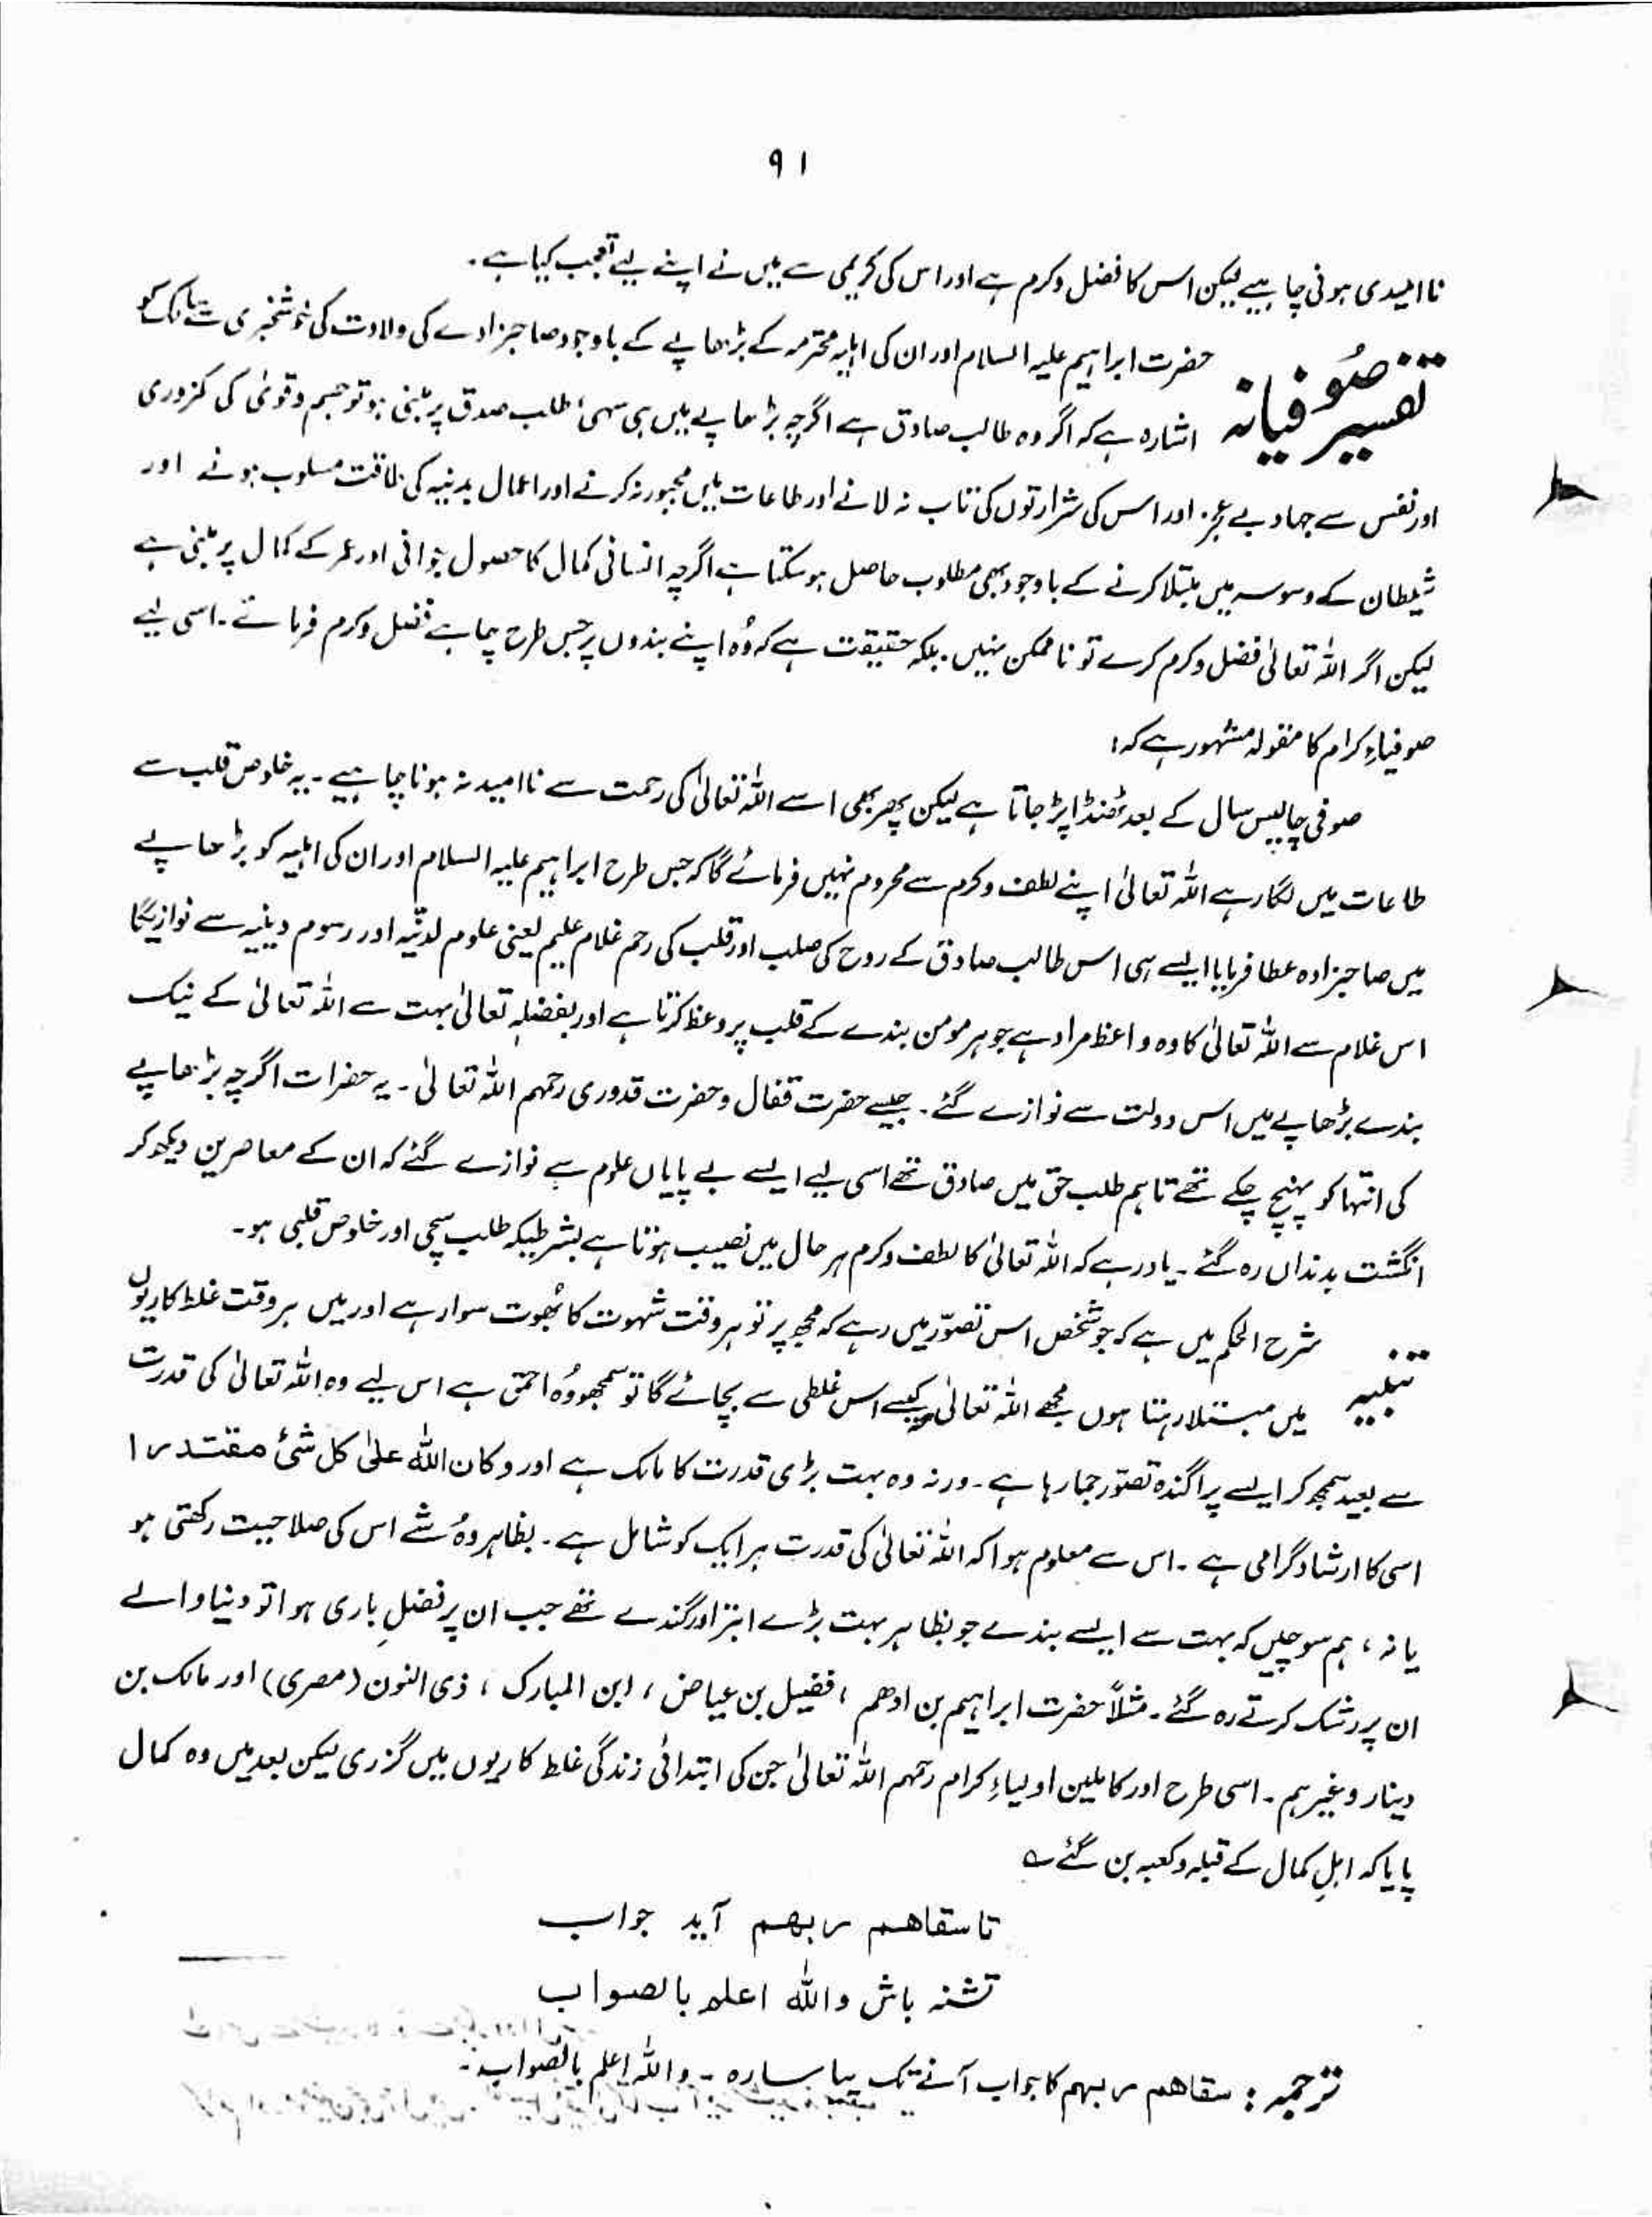 ۹۱
ناامیدی ہونی چاہیے لیکن اس کا فضل وکرم ہے اور اس کی کریمی سے میں نے اپنے لیے تعجب کیا ہے۔
تفسیر صوفیانہ
حضرت ابراہیم علیہ السلام اور ان کی اہلیہ محترمہ کے بڑھاپے کے باوجود صاحبزادے کی ولادت کی خوشخبری سے سالک کو
اشارہ ہے کہ اگر وہ طالب صادق ہے اگرچہ بڑھاپے میں ہی سہی، طلب صدق پر مبنی ہو تو جسم وقویٰ کی کمزوری
اور نفس سے جہاد بے عجز اور اس کی شرارتوں کی تاب نہ لانے اور طاعات میں مجبور نہ کرنے اور اعمال بدنیہ کی طاقت مسلوب ہونے اور
شیطان کے وسوسہ میں مبتلا کرنے کے باوجود بھی مطلوب حاصل ہوسکتا ہے اگرچہ انسانی کمال کا حصول جوانی اور عمر کے کمال پر مبنی ہے
لیکن اگر اللہ تعالیٰ فضل وکرم کرے تو ناممکن نہیں۔ بلکہ حقیقت ہے کہ وُہ اپنے بندوں پر جس طرح چاہے فضل وکرم فرمائے۔ اسی لیے
صوفیاءِ کرام کا مقولہ مشہور ہے کہ:
صوفی چالیس سال کے بعد ٹھنڈا پڑ جاتا ہے لیکن پھر بھی اسے اللہ تعالیٰ کی رحمت سے ناامید نہ ہونا چاہیے۔ یہ خلوص قلب سے
طاعات میں لگا رہے اللہ تعالیٰ اپنے لطف وکرم سے محروم نہیں فرمائے گا کہ جس طرح ابراہیم علیہ السلام اور ان کی اہلیہ کو بڑھاپے
میں صاحبزادہ عطا فرمایا ایسے ہی اس طالب صادق کے روح کی صلب اور قلب کی رحم غلام علیم یعنی علوم لدنّیہ اور رسوم دینیہ سے نوازیگا
اس غلام سے اللہ تعالیٰ کا وہ واعظ مراد ہے جو ہر مومن بندے کے قلب پر وعظ کرتا ہے اور بفضلہٖ تعالیٰ بہت سے اللہ تعالیٰ کے نیک
بندے بڑھاپے میں اس دولت سے نوازے گئے۔ جیسے حضرت قفال وحضرت قدوری رحمہم اللہ تعالیٰ۔ یہ حضرات اگرچہ بڑھاپے
کی انتہا کو پہنچ چکے تھے تاہم طلب حق میں صادق تھے اسی لیے ایسے بے پایاں علوم سے نوازے گئے کہ ان کے معاصرین دیکھ کر
انگشت بدنداں رہ گئے۔ یاد رہے کہ اللہ تعالیٰ کا لطف وکرم ہر حال میں نصیب ہوتا ہے بشرطیکہ طلب سچی اور خلوص قلبی ہو۔
تنبیہ
شرح الحکم میں ہے کہ جو شخص اس تصوّر میں رہے کہ مجھ پر تو ہر وقت شہوت کا بھُوت سوار ہے اور میں ہر وقت غلط کاریوں
میں مبتلا رہتا ہوں مجھے اللہ تعالیٰ کیسے اس غلطی سے بچائے گا تو سمجھو وُہ احمق ہے اس لیے وہ اللہ تعالیٰ کی قدرت
سے بعید سمجھ کر ایسے پراگندہ تصوّر جما رہا ہے۔ ورنہ وہ بہت بڑی قدرت کا مالک ہے اور وکان اللہ علیٰ کل شئ مقتدرا
اسی کا ارشاد گرامی ہے۔ اس سے معلوم ہوا کہ اللہ تعالیٰ کی قدرت ہر ایک کو شامل ہے۔ بظاہر وُہ شے اس کی صلاحیت رکھتی ہو
یا نہ، ہم سوچیں کہ بہت سے ایسے بندے جو بظاہر بہت بڑے ابتر اور گندے تھے جب ان پر فضلِ باری ہوا تو دنیا والے
ان پر رشک کرتے رہ گئے۔ مثلاً حضرت ابراہیم بن ادھم، فضیل بن عیاض، ابن المبارک، ذی النون (مصری) اور مالک بن
دینار وغیرہم۔ اسی طرح اور کاملین اولیاءِ کرام رحمہم اللہ تعالیٰ جن کی ابتدائی زندگی غلط کاریوں میں گزری لیکن بعد میں وہ کمال
پایا کہ اہلِ کمال کے قبلہ وکعبہ بن گئے ؎
تا سقاھم ربھم آید جواب
تشنہ باش واللہ اعلم بالصواب
ترجمہ: سقاھم ربہم کا جواب آنے تک پیاسا رہ۔ واللہ اعلم بالصواب۔